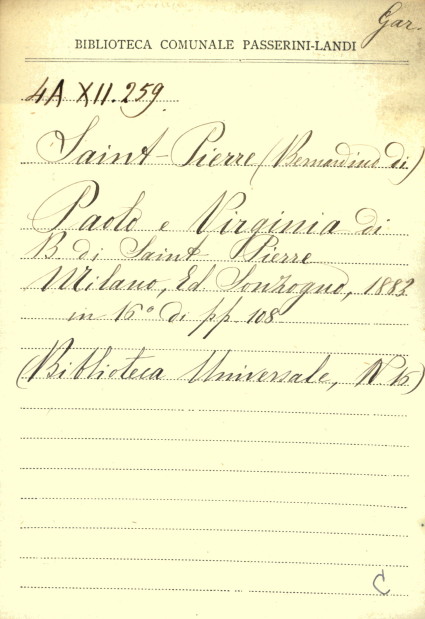 Gar.
BIBLIOTECA COMUNALE PASSERINI-LANDI
4A XII.259
Saint-Pierre (Bernardino di)
Paolo e Virginia di
B. di Saint Pierre
Milano, Ed Sonzogno, 1883
in 16° di pp 108
(Biblioteca Universale, N 16)
C